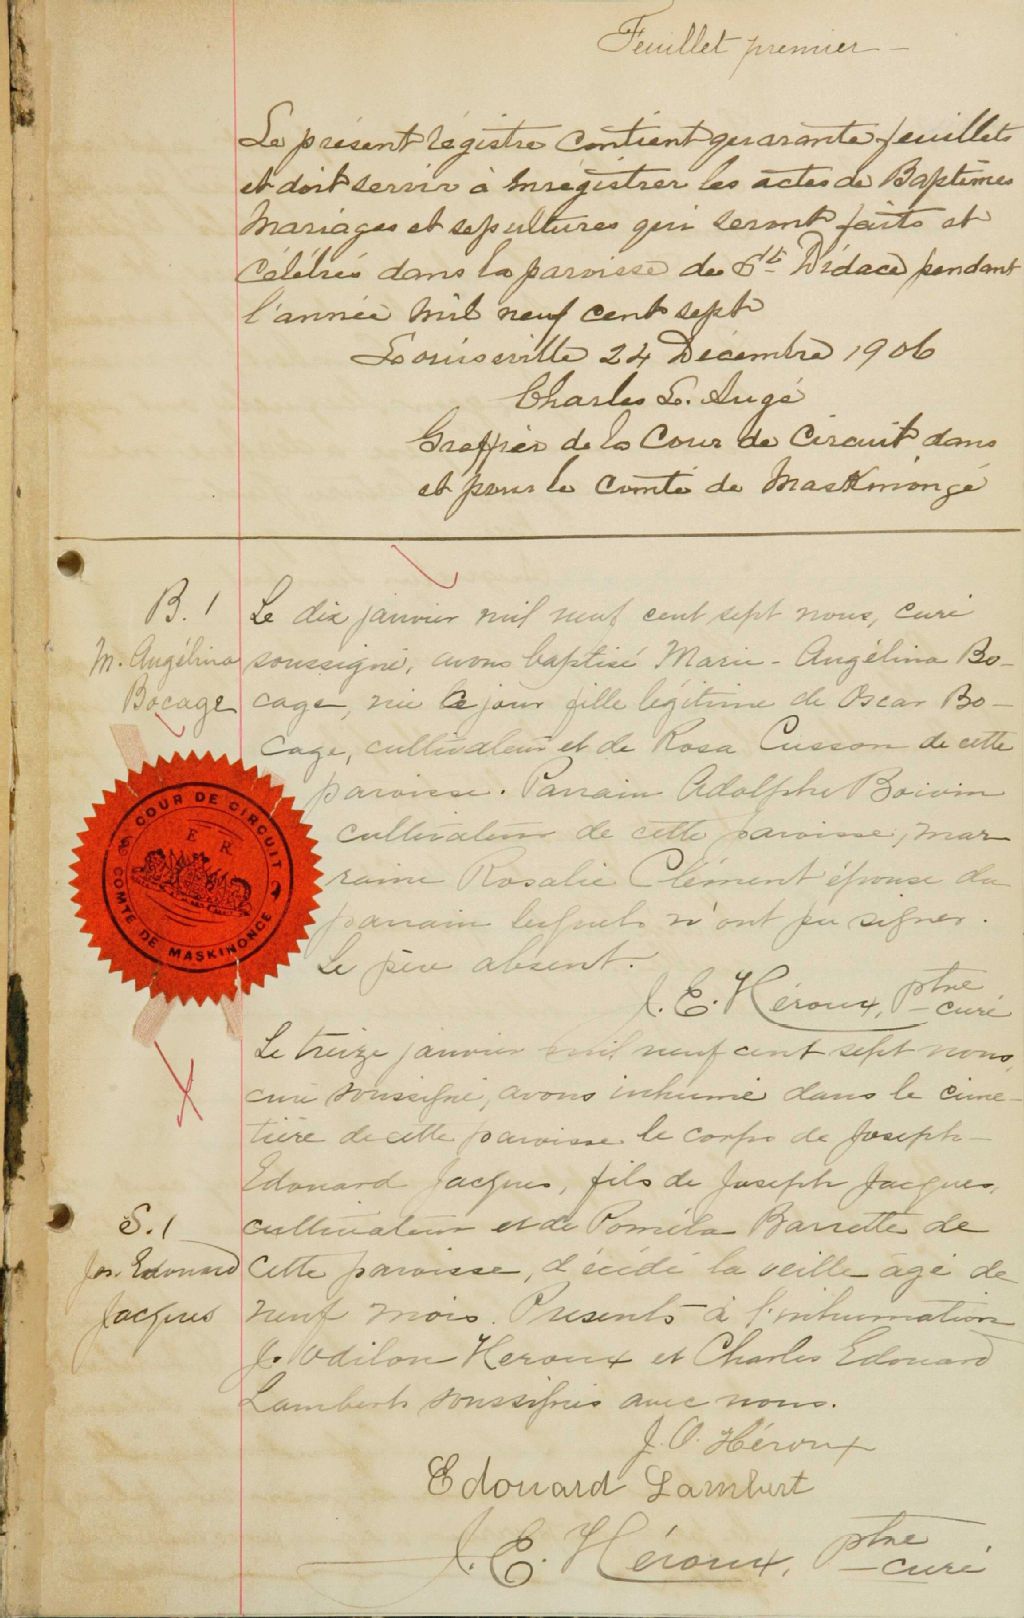 Feuillet premier —
Le présent régistre contient quarante feuillets
et doit servir à enrégistrer les actes de Baptêmes
Mariages et sepultures qui seront faits et
Célébrés dans la paroisse de St Didace pendant
l'année mil neuf cent sept
Louiseville 24 Décembre 1906
Charles L. Augé
Greffier de la Cour de Circuit dans
et pour le Comté de Maskinongé
B. 1
M. Angélina
Bocage
Le dix janvier mil neuf cent sept nous, curé
soussigné, avons baptisé Marie-Angélina Bo-
cage, née ce jour fille légitime de Oscar Bo-
cage, cultivateur et de Rosa Cusson de cette
paroisse. Parrain Adolphe Boivin
cultivateur de cette paroisse, mar
raine Rosalie Clément épouse du
parrain lesquels n'ont pu signer.
Le père absent.
J. E. Héroux, ptre
curé
COUR DE CIRCUIT
E R
COMTÉ DE MASKINONGE
Le treize janvier mil neuf cent sept nous,
curé soussigné, avons inhumé dans le cime-
tière de cette paroisse le corps de Joseph-
Edouard Jacques, fils de Joseph Jacques,
cultivateur et de Poméla Barrette de
cette paroisse, décédé la veille âgé de
neuf mois. Présents à l'inhumation
J. Odilon Heroux et Charles Edouard
Lambert soussignés avec nous.
S. 1
Jos. Edouard
Jacques
J. O. Héroux
Edouard Lambert
J. E. Héroux, ptre
curé